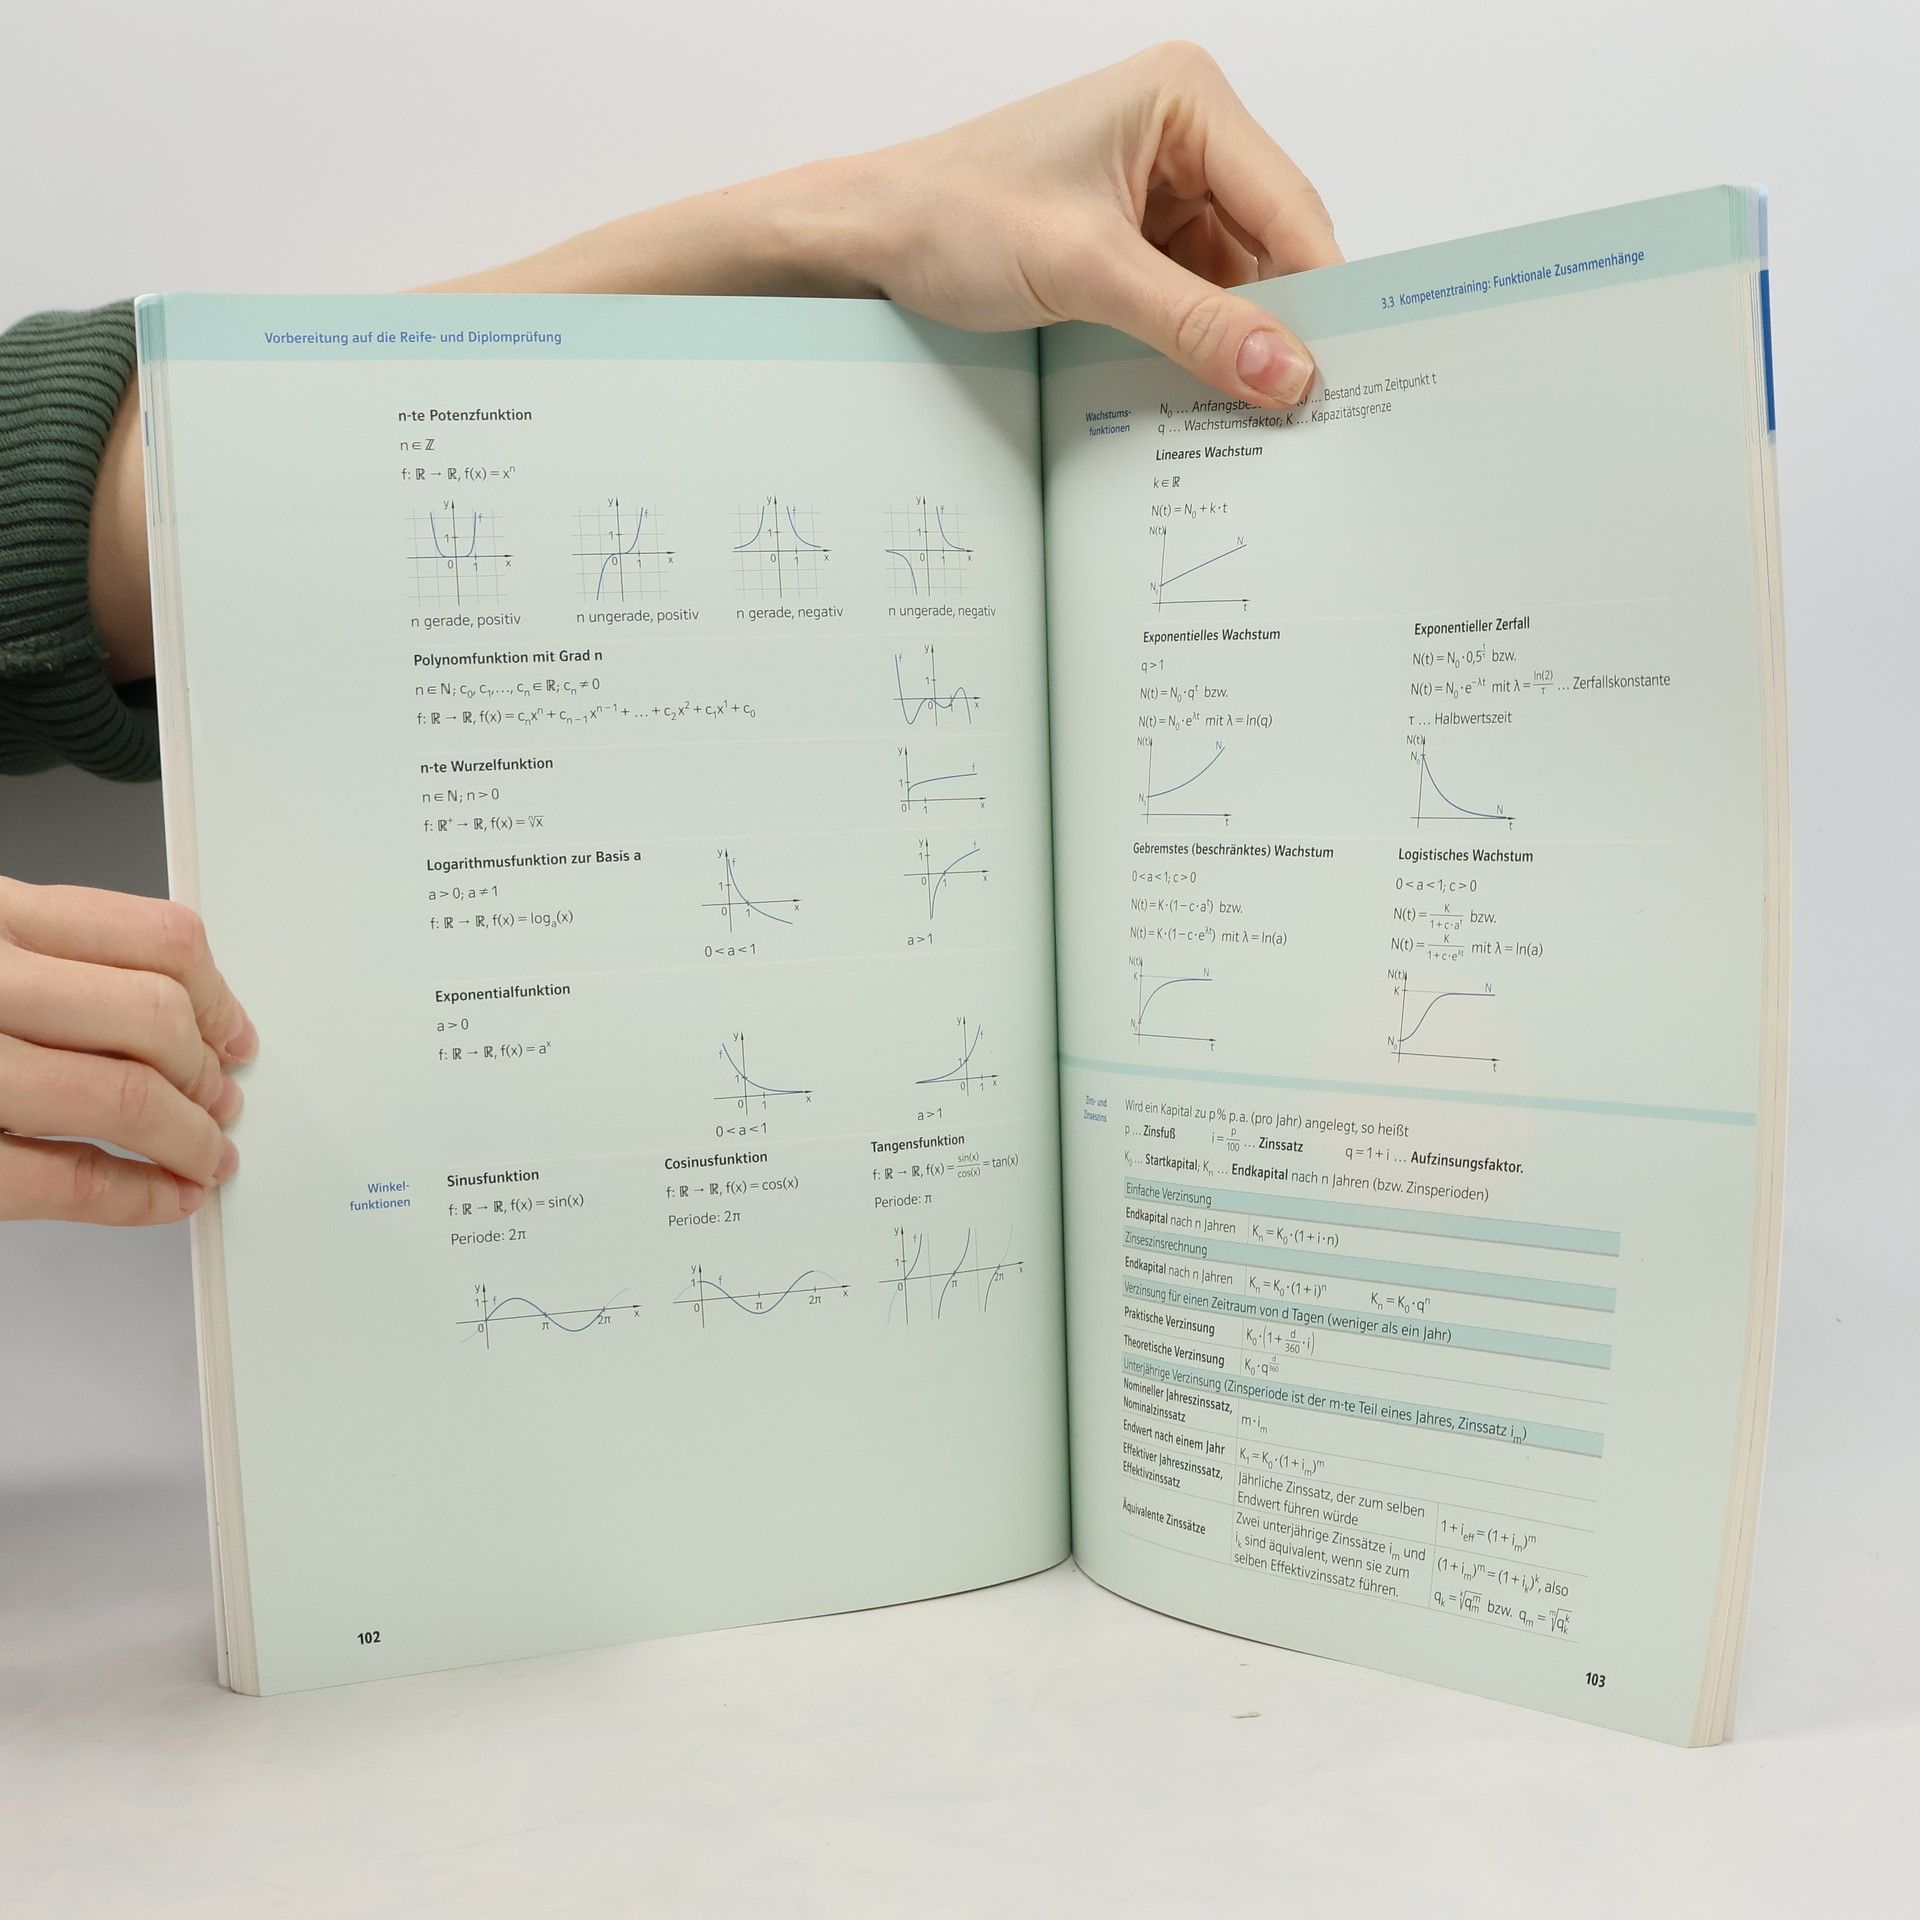 Vorbereitung auf die Reife- und Diplomprüfung
n-te Potenzfunktion
n ∈ ℤ
f: ℝ → ℝ, f(x) = xⁿ
y f 1 0 1 x
y f 1 0 1 x
y f 1 0 1 x
y f 1 0 1 x
n gerade, positiv
n ungerade, positiv
n gerade, negativ
n ungerade, negativ
Polynomfunktion mit Grad n
n ∈ ℕ; c₀, c₁, ..., cₙ ∈ ℝ; cₙ ≠ 0
f: ℝ → ℝ, f(x) = cₙxⁿ + cₙ₋₁xⁿ⁻¹ + ... + c₂x² + c₁x¹ + c₀
f y 1 0 1 x
n-te Wurzelfunktion
n ∈ ℕ; n > 0
f: ℝ⁺ → ℝ, f(x) = ⁿ√x
y f 1 0 1 x
Logarithmusfunktion zur Basis a
a > 0; a ≠ 1
f: ℝ → ℝ, f(x) = logₐ(x)
y f 1 0 1 x
0 < a < 1
y f 1 0 1 x
a > 1
Exponentialfunktion
a > 0
f: ℝ → ℝ, f(x) = aˣ
f y 1 0 1 x
0 < a < 1
y f 1 0 1 x
a > 1
Winkel-
funktionen
Sinusfunktion
f: ℝ → ℝ, f(x) = sin(x)
Periode: 2π
y 1 f 0 π 2π x
Cosinusfunktion
f: ℝ → ℝ, f(x) = cos(x)
Periode: 2π
y 1 f 0 π 2π x
Tangensfunktion
f: ℝ → ℝ, f(x) = sin(x)/cos(x) = tan(x)
Periode: π
y f 1 0 π 2π x
102
3.3 Kompetenztraining: Funktionale Zusammenhänge
Wachstums-
funktionen
N₀ ... ... Bestand zum Zeitpunkt t
q ... Wachstumsfaktor; K ... Kapazitätsgrenze
Lineares Wachstum
k ∈ ℝ
N(t) = N₀ + k·t
N(t) N N₀ t
Exponentielles Wachstum
q > 1
N(t) = N₀·qᵗ bzw.
N(t) = N₀·e^λt mit λ = ln(q)
N(t) N N₀ t
Exponentieller Zerfall
N(t) = N₀·0,5^(t/τ) bzw.
N(t) = N₀·e^−λt mit λ = ln(2)/τ ... Zerfallskonstante
τ ... Halbwertszeit
N(t) N₀ N t
Gebremstes (beschränktes) Wachstum
0 < a < 1; c > 0
N(t) = K·(1 − c·aᵗ) bzw.
N(t) = K·(1 − c·e^λt) mit λ = ln(a)
N(t) K N N₀ t
Logistisches Wachstum
0 < a < 1; c > 0
N(t) = K/(1 + c·aᵗ) bzw.
N(t) = K/(1 + c·e^λt) mit λ = ln(a)
N(t) K N N₀ t
Zins- und
Zinseszins
Wird ein Kapital zu p% p.a. (pro Jahr) angelegt, so heißt
p ... Zinsfuß i = p/100 ... Zinssatz q = 1 + i ... Aufzinsungsfaktor.
K₀ ... Startkapital; Kₙ ... Endkapital nach n Jahren (bzw. Zinsperioden)
Einfache Verzinsung
Endkapital nach n Jahren Kₙ = K₀·(1 + i·n)
Zinseszinsrechnung
Endkapital nach n Jahren Kₙ = K₀·(1 + i)ⁿ Kₙ = K₀·qⁿ
Verzinsung für einen Zeitraum von d Tagen (weniger als ein Jahr)
Praktische Verzinsung K₀·(1 + d/360·i)
Theoretische Verzinsung K₀·q^(d/360)
Unterjährige Verzinsung (Zinsperiode ist der m-te Teil eines Jahres, Zinssatz iₘ)
Nomineller Jahreszinssatz,
Nominalzinssatz m·iₘ
Endwert nach einem Jahr K₁ = K₀·(1 + iₘ)ᵐ
Effektiver Jahreszinssatz,
Effektivzinssatz
Jährliche Zinssatz, der zum selben
Endwert führen würde
1 + i_eff = (1 + iₘ)ᵐ
Äquivalente Zinssätze
Zwei unterjährige Zinssätze iₘ und
iₖ sind äquivalent, wenn sie zum
selben Effektivzinssatz führen.
(1 + iₘ)ᵐ = (1 + iₖ)ᵏ, also
qₖ = ᵏ√qₘᵐ bzw. qₘ = ᵐ√qₖᵏ
103